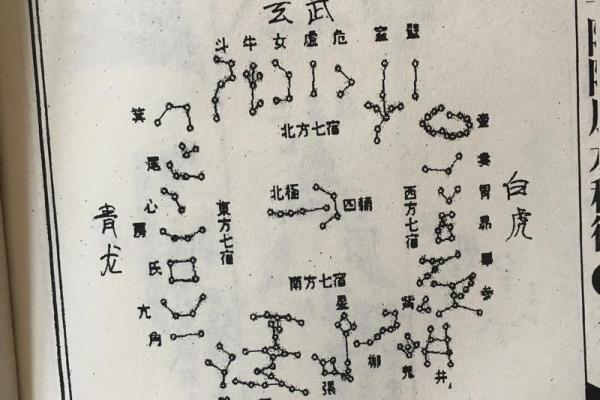 玄武
斗 牛 女 虛 危 室 壁
北方七宿
箕
尾
心
房
氐
亢
角
東方七宿
青龙
北極
四輔
西方七宿
婁
胃
昴
畢
參
白虎
南方七宿
星
張
柳
鬼
井